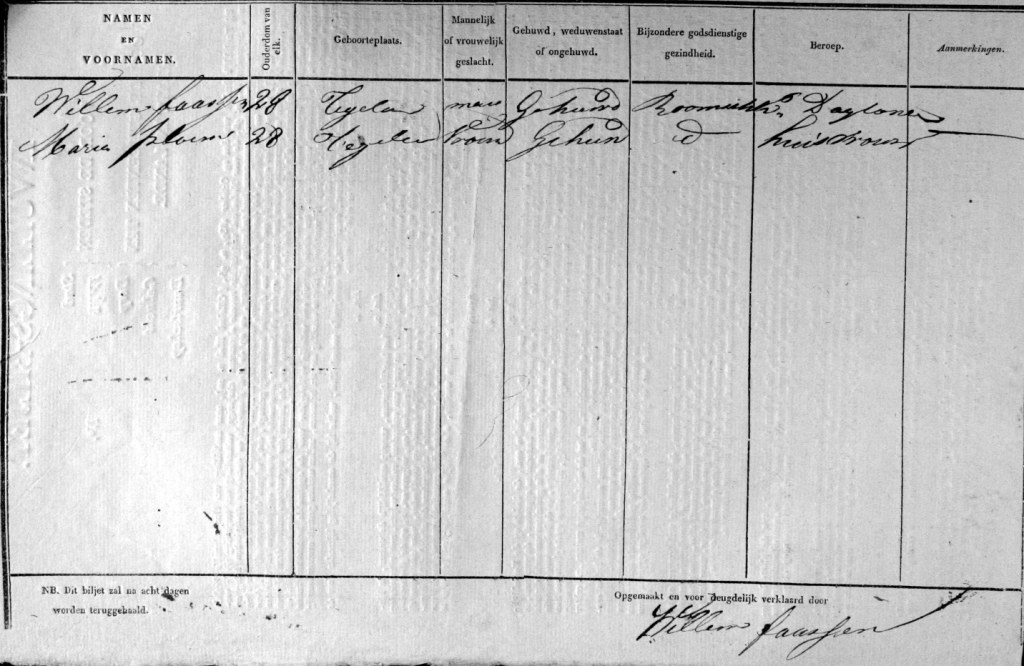 NAMEN EN VOORNAMEN.
Ouderdom van elk.
Geboorteplaats.
Mannelijk of vrouwelijk geslacht.
Gehuwd, weduwenstaat of ongehuwd.
Bijzondere godsdienstige gezindheid.
Beroep.
Aanmerkingen.
Willem faassen 28 Tegelen man Gehuwd Daglone
Maria ploem 28 Tegelen vrou Gehuw id huisvrouw
NB. Dit biljet zal na acht dagen
worden teruggehaald.
Opgemaakt en voor deugdelijk verklaard door
Willem faassen